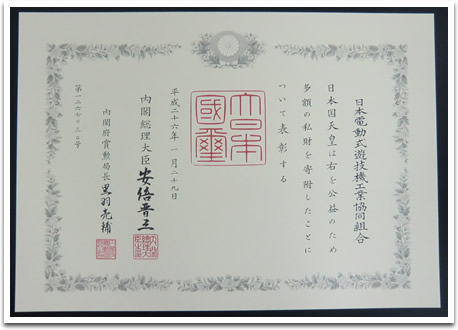 日本電動式遊技機工業協同組合
日本国天皇は右を公益のため
多額の私財を寄附したことに
ついて表彰する
大日本國璽
平成二十六年一月二十九日
内閣総理大臣 安倍晋三
内閣府賞勲局長 黒羽亮輔